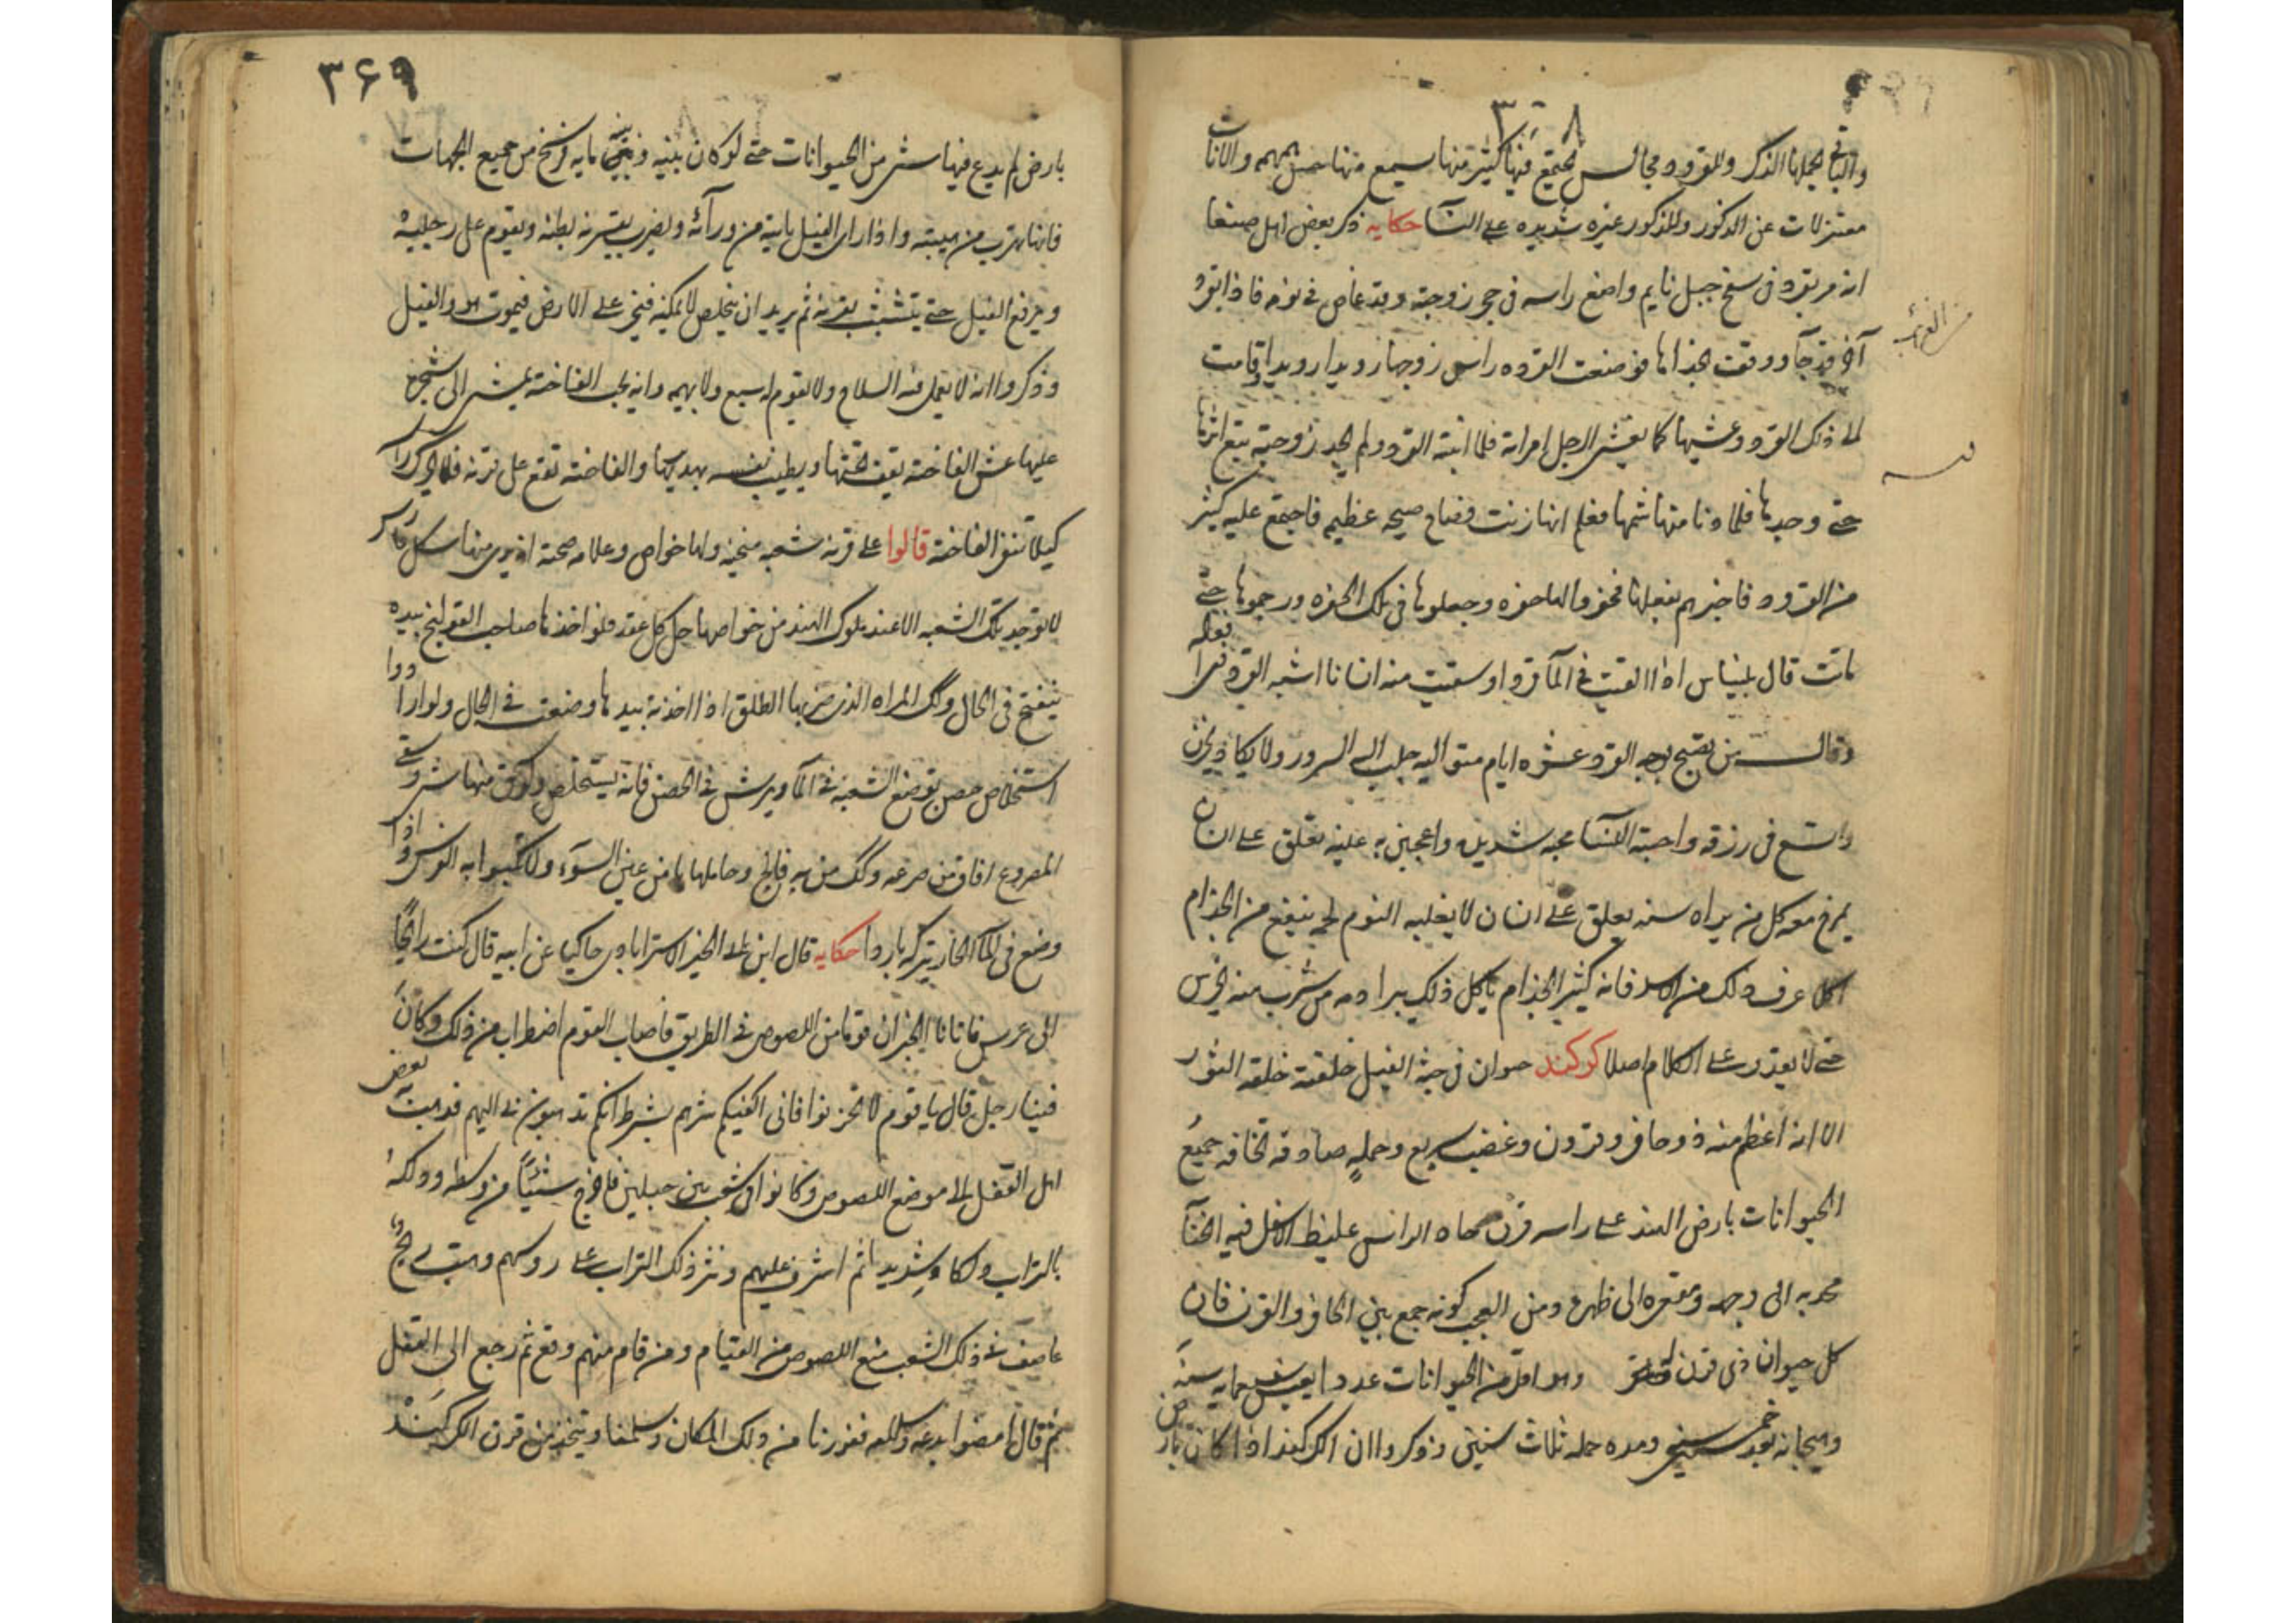 ٣٠٨
والباقي يحملها الذكر وللقرود مجالس يجتمع فيها كثير منها يسمع منها همهمه والاناث
معتزلات عن الذكور وللذكور غيره شديده على النسآ حكايه ذكر بعض اهل صنعا
انه مر بقرد في سفح جبل نايم واضع راسه في حجر زوجته وقد غاص في نومه فاذا بقرد
آخر قد جآ ووقف بحذاها فوضعت القرده راس زوجها رويدا رويدا وقامت
الى ذلك القرد وغشيها كما يغشى الرجل امراته فلما انتبه القرد ولم يجد زوجته يتبع اثرها
حتى وجدها فلما دنا منها شمها فعلم انها زنت فصاح صيحه عظيم فاجتمع عليه كثير
من القرود فاخبرهم بفعلها فحفروا لها حفره وجعلوها في تلك الحفره ورجموها حتى
ماتت قال بليناس اذا القيت في المآ قردا وسقيت منه انسانا اشبه القرود فى
وقال من يصبح بوجه القرد عشره ايام متواليه جلب اليه السرور ولا يكاد يحزن
واتسع في رزقه واحبته النسآ محبه شديده واعجبن به عينه تعلق على انسان
يمزح معه كل من يراه سنه يعلق على انسان لا يغلبه النوم لحمه ينفع من الجذام
اكلا عرف ذلك من الاسد فانه كثير الجذام ياكل ذلك يبرا دمه من شرب منه يخرس
حتى لا يقدر على الكلام اصلا كركند حيوان في جثه الفيل خلقته خلقه الثور
الا انه اعظم منه ذو حافر وقرون وغضب سريع وحمله صادقه تخافه جميع
الحيوانات بارض الهند على راسه قرن حاد الراس غليظ الاسفل فيه انحنآ
محدبه الى وجهه ومقعره الى ظهره ومن العجب كونه جمع بين الحافر والقرن فان
كل حيوان ذى قرن وهو اقل من الحيوانات عددا يعيش سبعمايه سنه
وهيجانه بعد خمسين ومده حمله ثلاث سنين وذكروا ان الكركند اذا كان بارض
٣۶٩
بارض لم يدع فيها شى من الحيوانات حتى لو كان بينه وبينه مايه فرسخ من جميع الجهات
فانها تهرب من هيبته واذا راى الفيل ياتيه من ورآئه ويضرب بقرنه بطنه ويقوم على رجليه
ويرفع الفيل حتى يتشبث بقرنه ثم يريد ان يتخلص لا يمكنه فيخر على الارض فيموت هو والفيل
وذكروا انه لا يعمل فيه السلاح ولا يقوم له سبع ولا بهيمه وانه يحب الفاخته يمشى الى شجره
عليها عش الفاخته يقف تحتها ويطيب نفسه بهديرها والفاخته تقع على قرنه فلا يحرك راسه
كيلا تنفر الفاخته قالوا على قرنه شعبه منحنيه ولها خواص وعلامه صحته ان يرى منها شكل فارس
لا توجد تلك الشعبه الا عند ملوك الهند من خواصها حل كل عقد فلو اخذها صاحب القولنج بيده
ينفتح في الحال وكك المراه الذى ضربها الطلق اذا اخذته بيدها وضعت في الحال ولو ارادوا
استخلاص حصن توضع الشعبه في المآ ويرش في الحصن فانه يستخلص ولو دق منها شى وسقى
المصروع افاق من صرعه وكك من به فالج وحاملها يامن عين السوء ولا تكبوا به الفرس واذا
وضع في المآ الحار يتركه باردا حكايه قال ابن على الخير الاسترابادى حاكيا عن ابيه قال كنت رايحًا
الى عرس فاتانا الخبر ان قوما من اللصوص في الطريق فاصاب القوم اضطراب من ذلك وكان
فينا رجل قال يا قوم لا تحزنوا فانى اكفيكم شرهم بشرط انكم تذهبون بى اليهم فذهب بعض
اهل القفل الى موضع اللصوص وكانوا فى شعب بين جبلين فاخرج شيئًا من وسطه ودلكه
بالتراب دلكا شديدا ثم اشرف عليهم ونثر ذلك التراب على روسهم وهبت ريح
عاصف في ذلك الشعب منع اللصوص من القيام ومن قام منهم وقع ثم رجع الى القفل
ثم قال امضوا بدعه الله فعبرنا من ذلك المكان وسلمنا ويتخذ من قرن الكركند